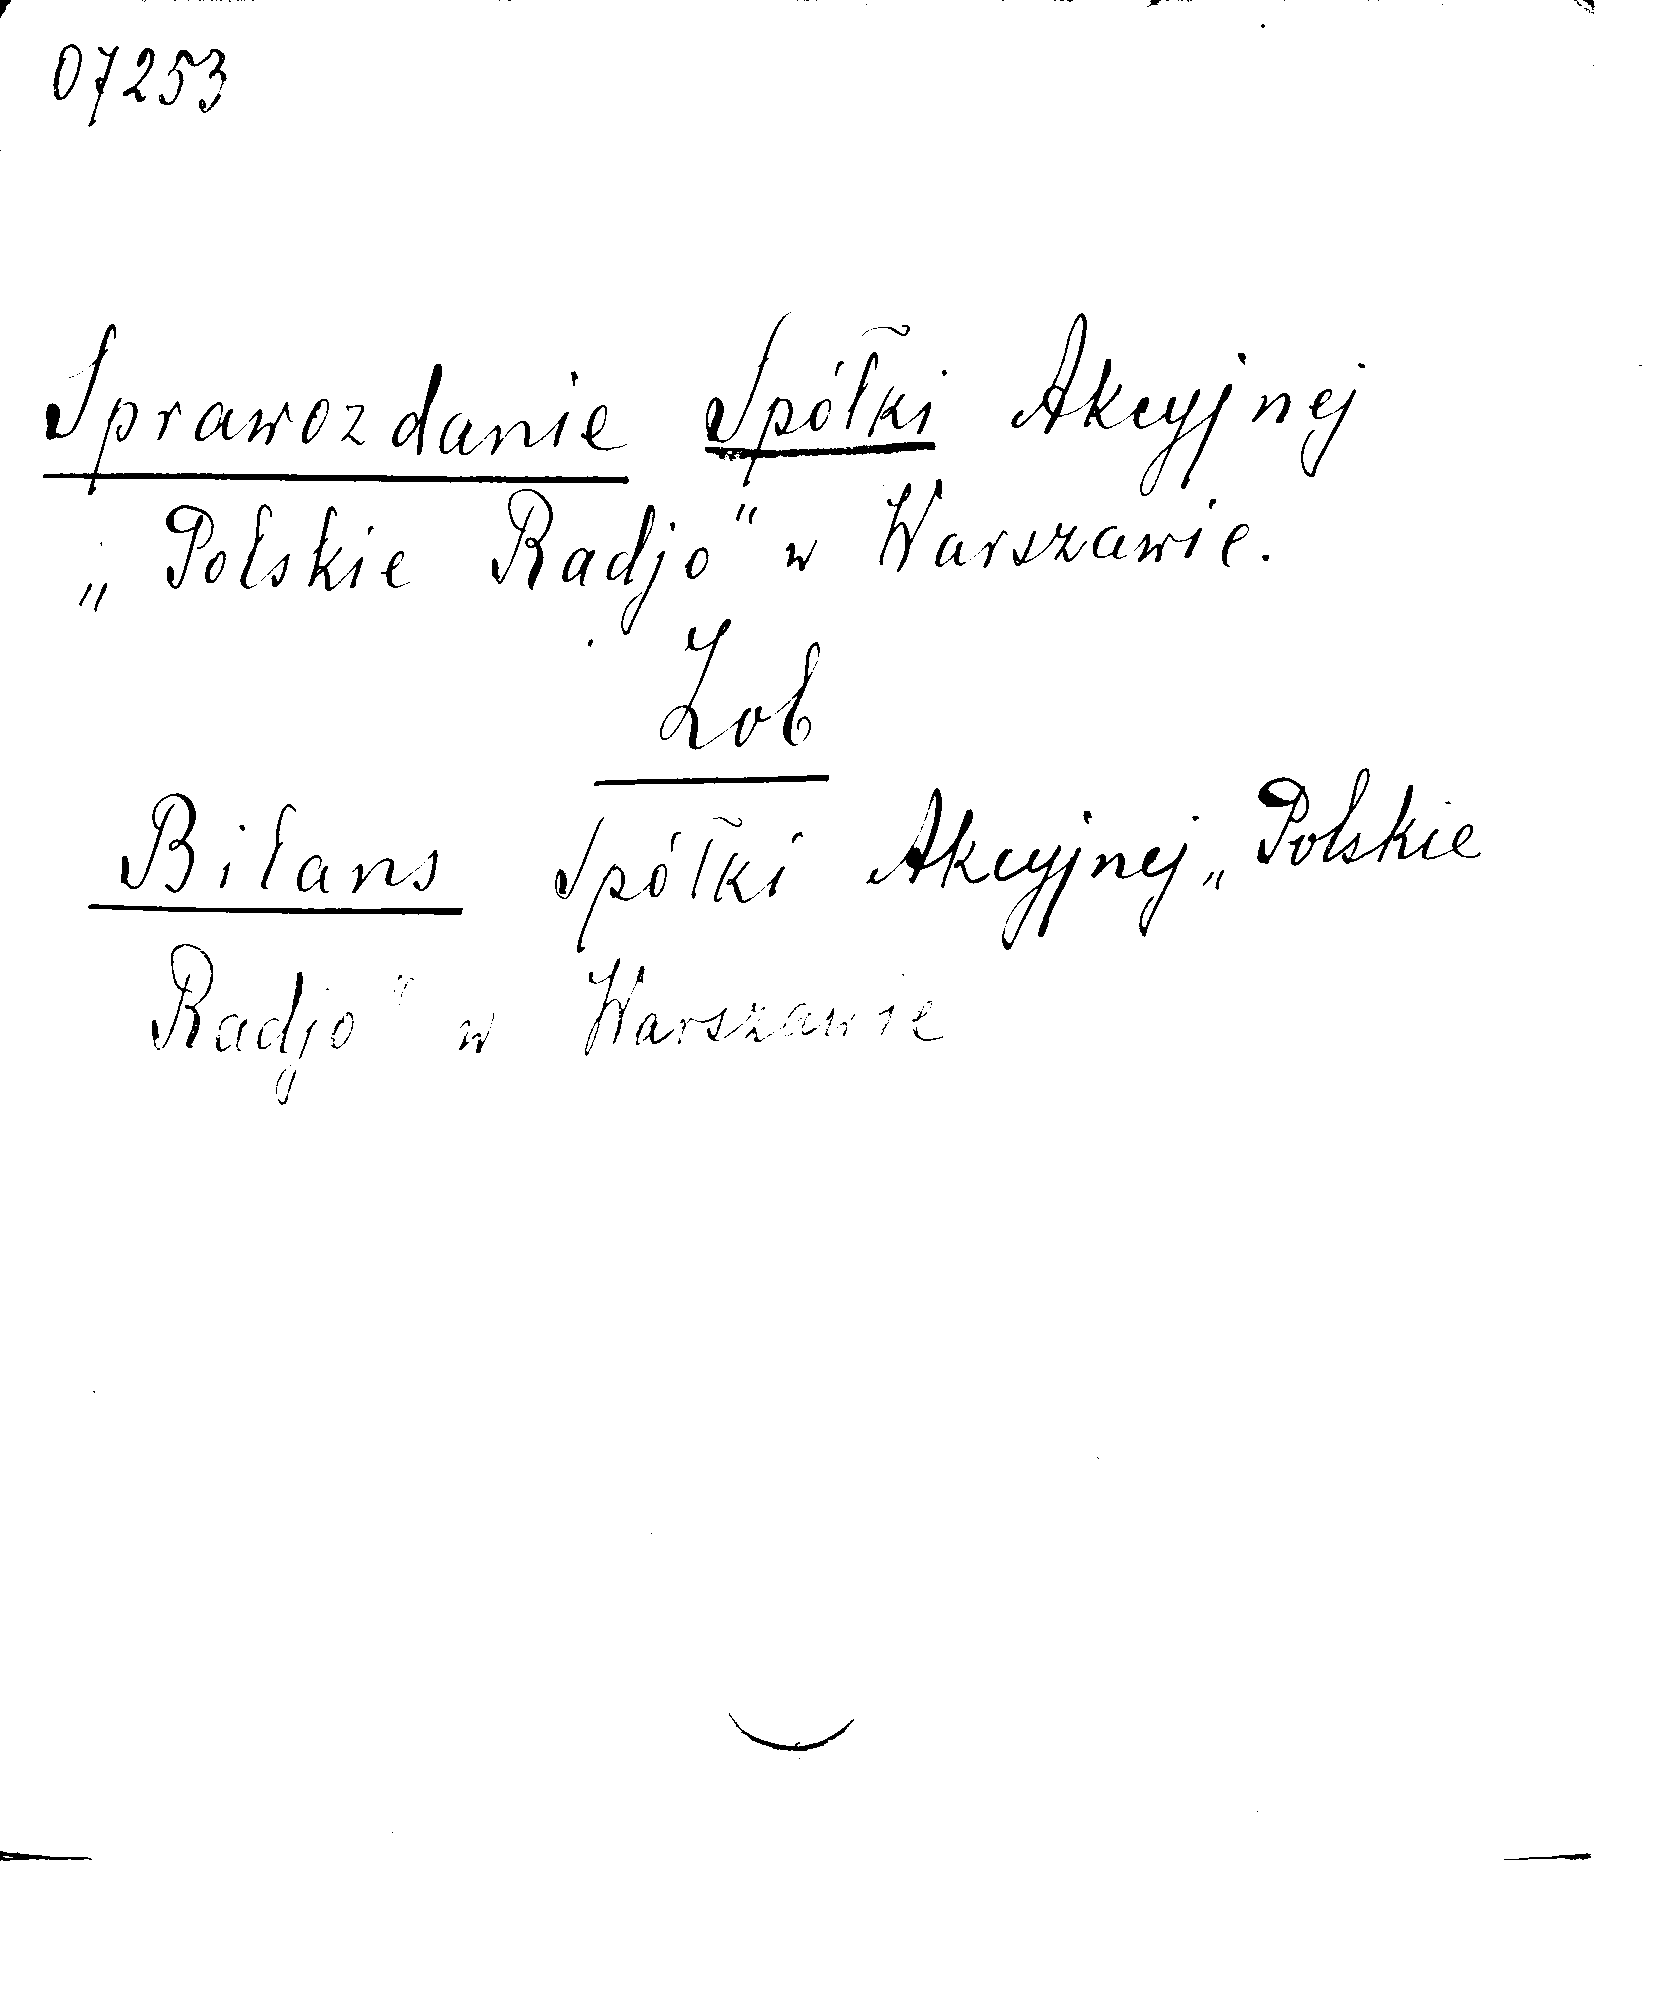 07253
Sprawozdanie Spółki Akcyjnej
„Polskie Radjo" w Warszawie.
Zob
Bilans Spółki Akcyjnej „Polskie
Radjo" w Warszawie